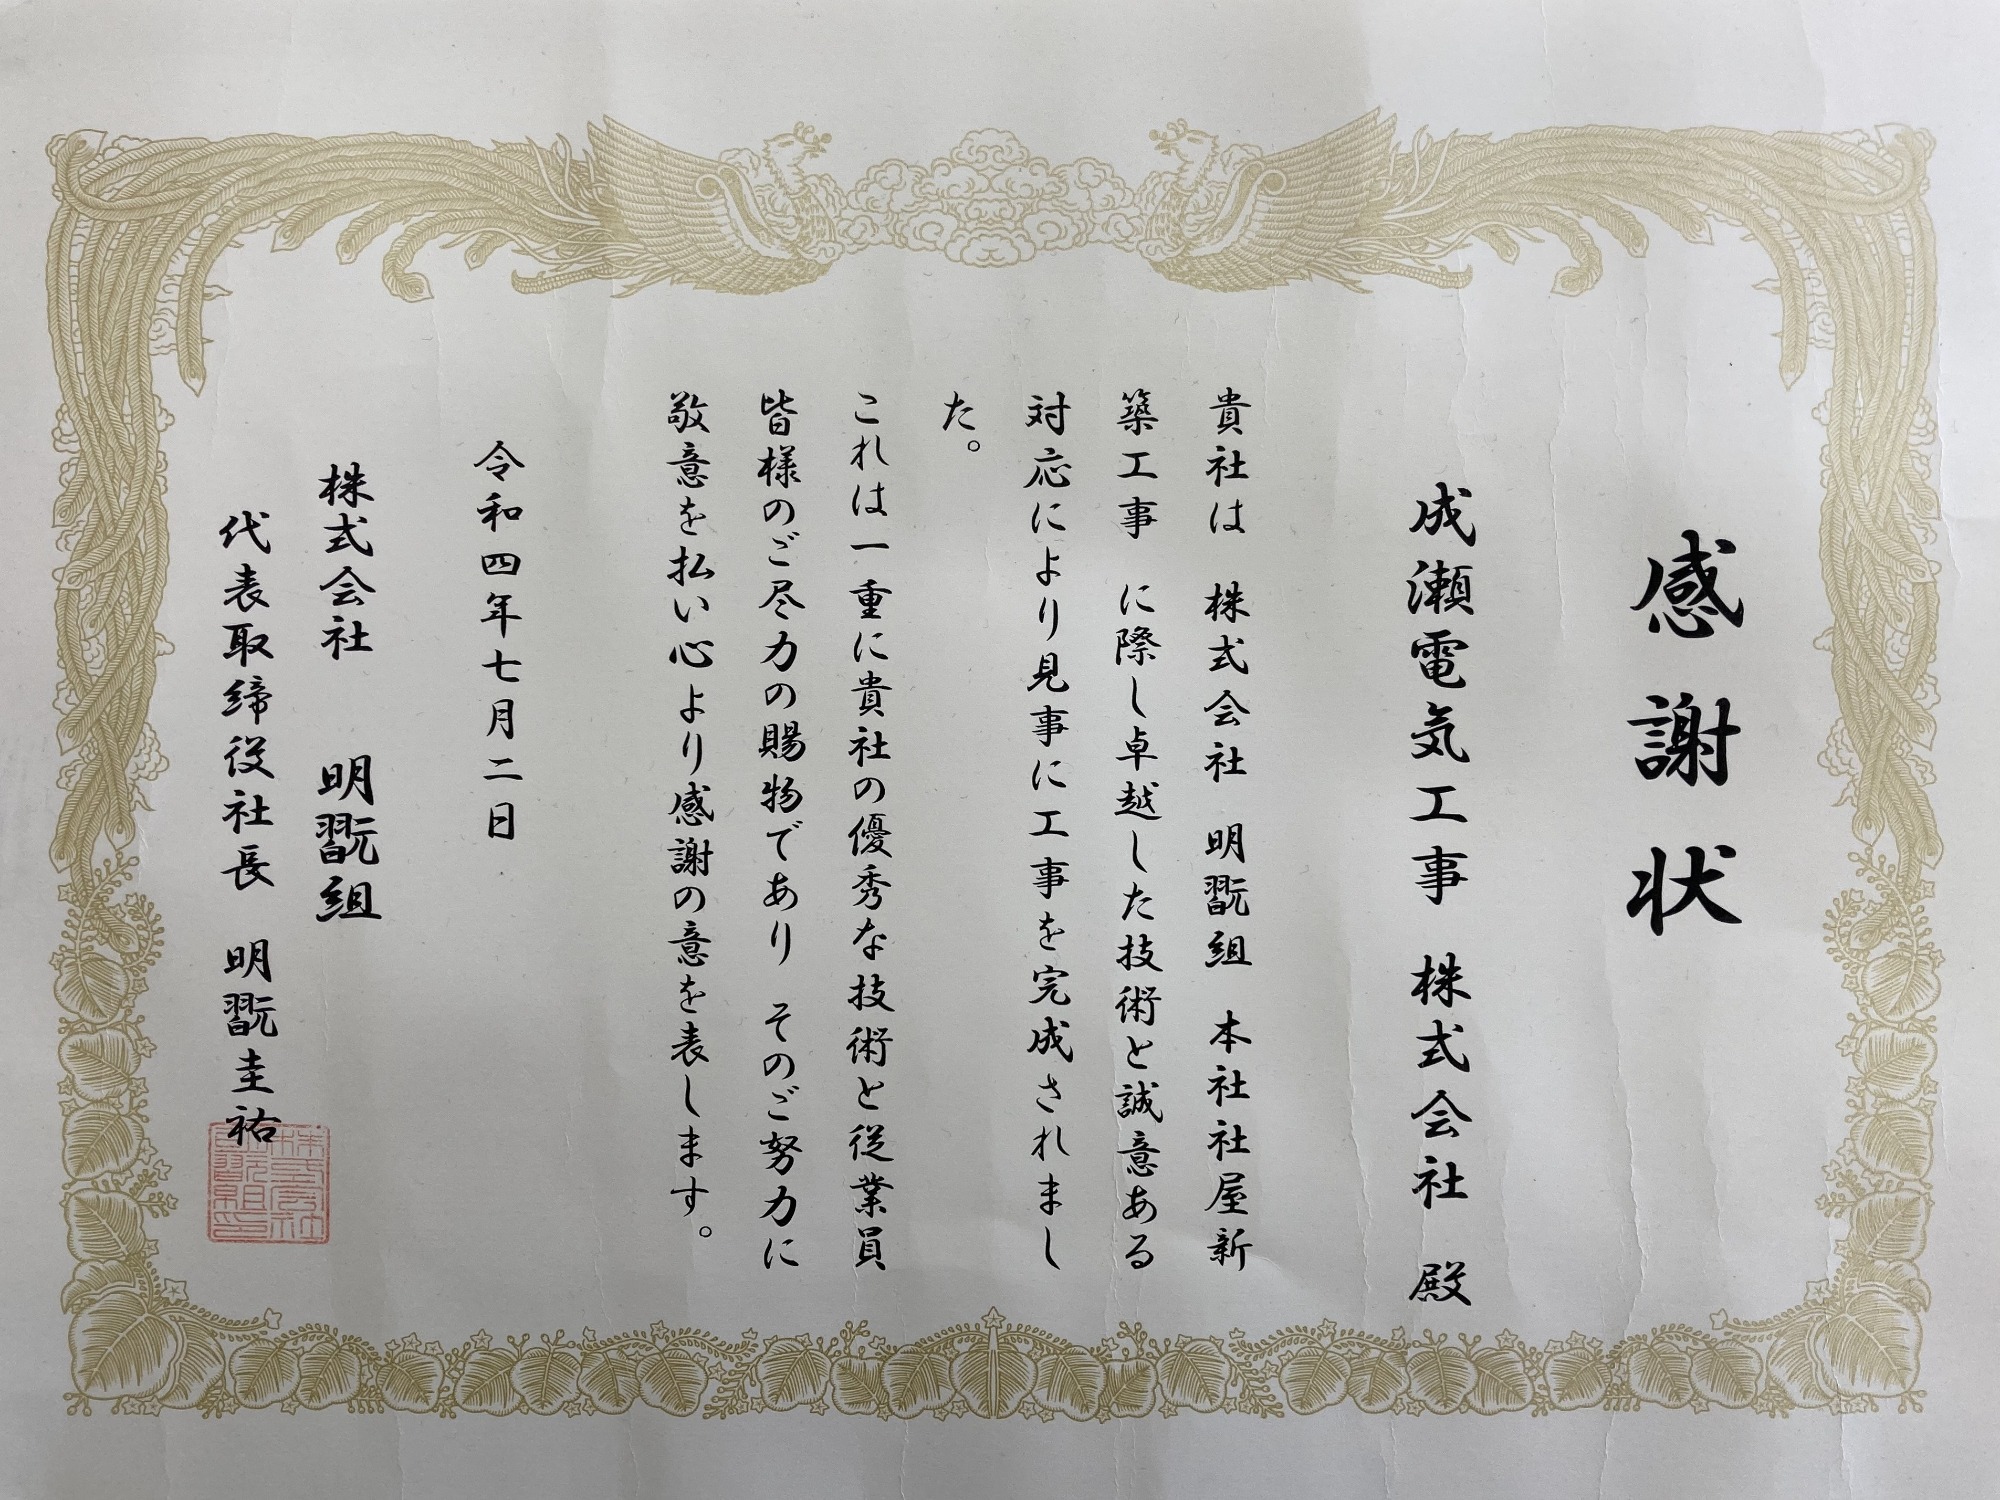 感謝状
成瀬電気工事 株式会社 殿
貴社は 株式会社 明翫組 本社社屋新
築工事 に際し卓越した技術と誠意ある
対応により見事に工事を完成されまし
た。
これは一重に貴社の優秀な技術と従業員
皆様のご尽力の賜物であり そのご努力に
敬意を払い心より感謝の意を表します。
令和四年七月二日
株式会社 明翫組
代表取締役社長 明翫圭祐
株式会社
明翫組印